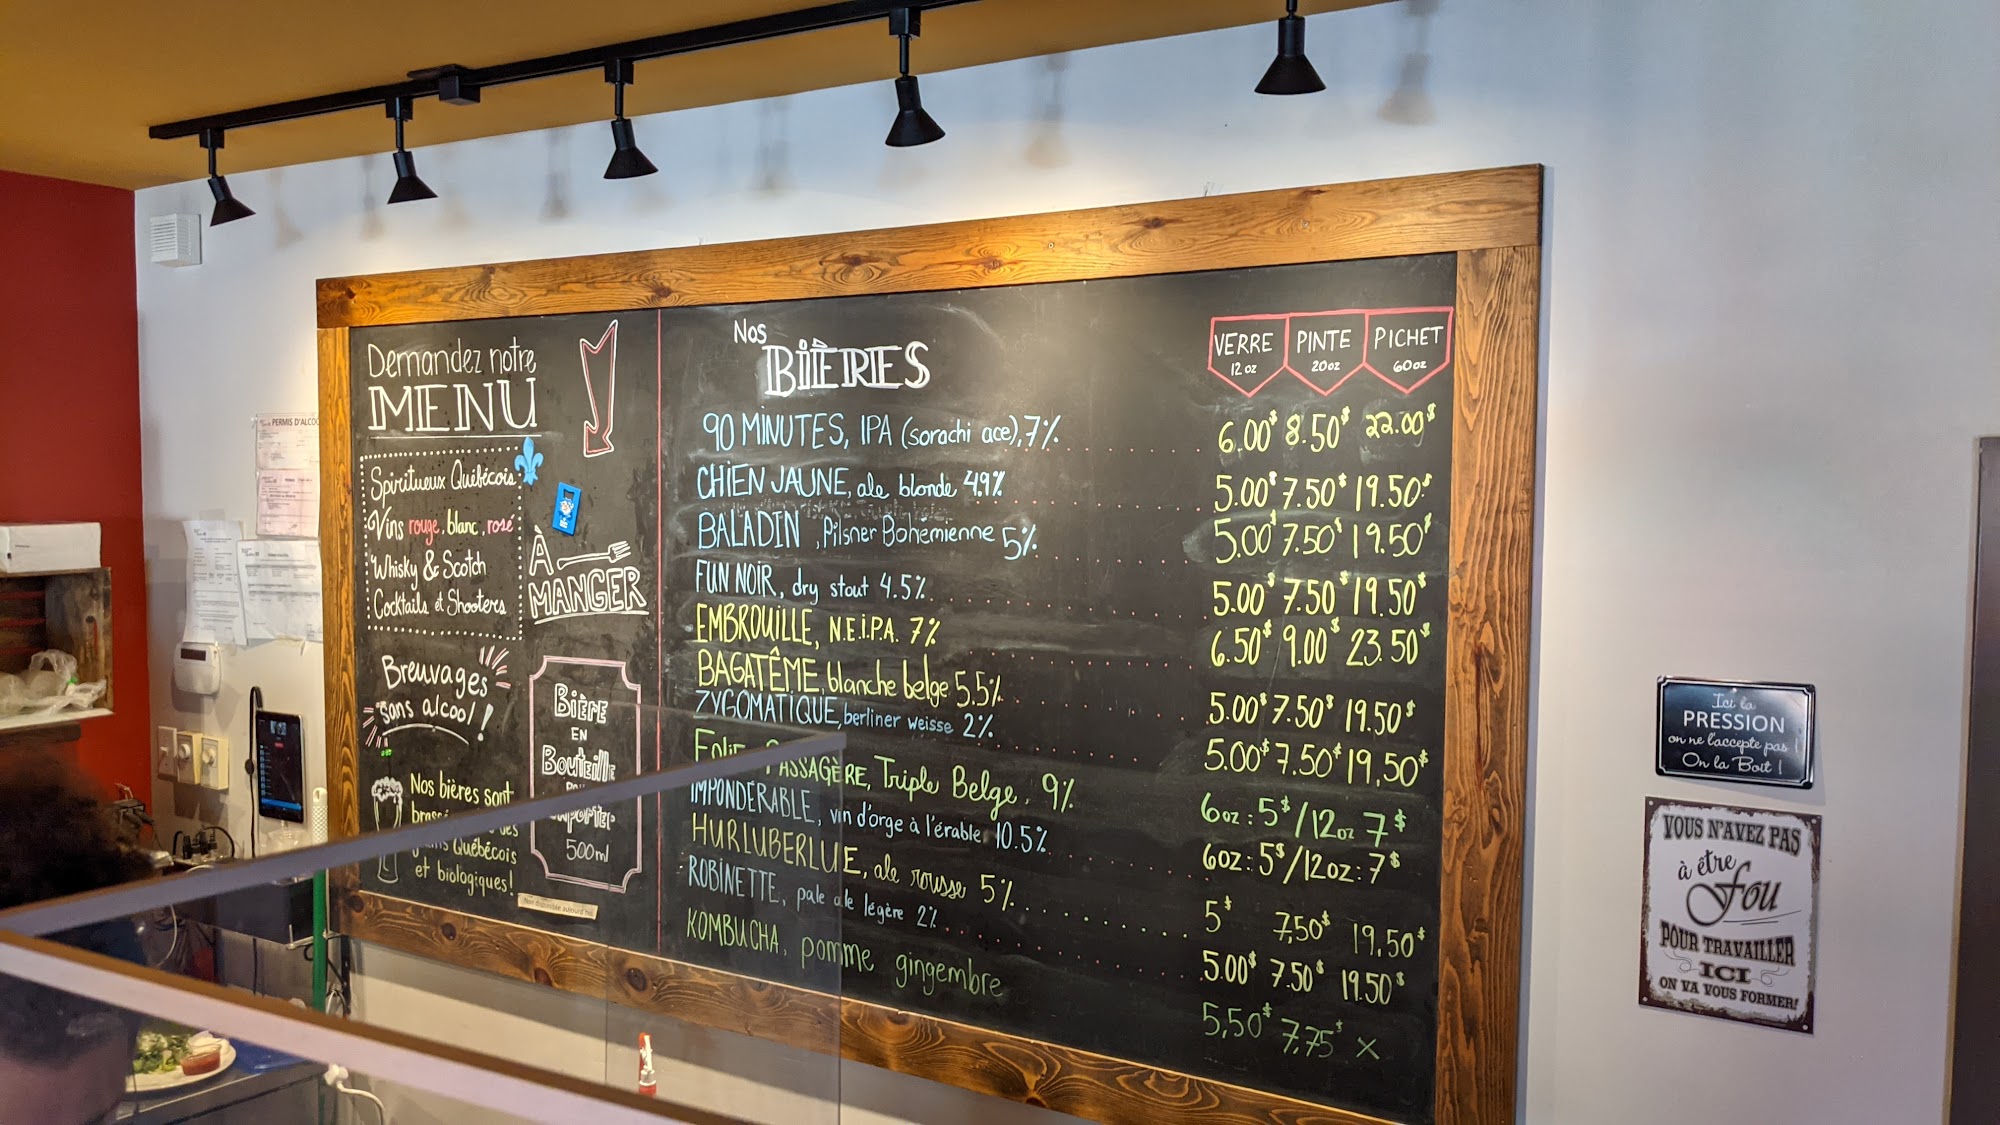 PERMIS D'ALCOO
Demandez notre
MENU
Spiritueux Québécois
Vins rouge, blanc, rosé
Whisky & Scotch
Cocktails et Shooters
À
MANGER
Breuvages
sans alcool!
Nos bières sont
Québécois
et biologiques!
BIÈRE
EN
BOUTEILLE
500ml
Non disponible aujourd'hui
Nos
BIÈRES
VERRE PINTE PICHET
12 oz 20oz 60oz
90 MINUTES, IPA (sorachi ace), 7% 6.00$ 8.50$ 22.00$
CHIEN JAUNE, ale blonde 4.9% 5.00$ 7.50$ 19.50$
BALADIN, Pilsner Bohémienne 5% 5.00 7.50$ 19.50$
FUN NOIR, dry stout 4.5% 5.00$ 7.50$ 19.50$
EMBROUILLE, N.E.I.P.A. 7% 6.50$ 9.00$ 23.50$
BAGATÊME, blanche belge 5.5% 5.00$ 7.50$ 19.50$
ZYGOMATIQUE, berliner weisse 2% 5.00$ 7.50$ 19,50$
FOLIE PASSAGÈRE, Triple Belge, 9% 6oz: 5$/12oz 7$
IMPONDÉRABLE, vin d'orge à l'érable 10.5% 6oz: 5$/12oz: 7$
HURLUBERLUE, ale rousse 5% 5$ 7,50$ 19,50$
ROBINETTE, pale ale légère 2% 5.00$ 7.50$ 19.50$
KOMBUCHA, pomme gingembre 5,50$ 7,75$ X
Ici la
PRESSION
on ne l'accepte pas!
On la Boit!
VOUS N'AVEZ PAS
à être
Fou
POUR TRAVAILLER
ICI
ON VA VOUS FORMER!